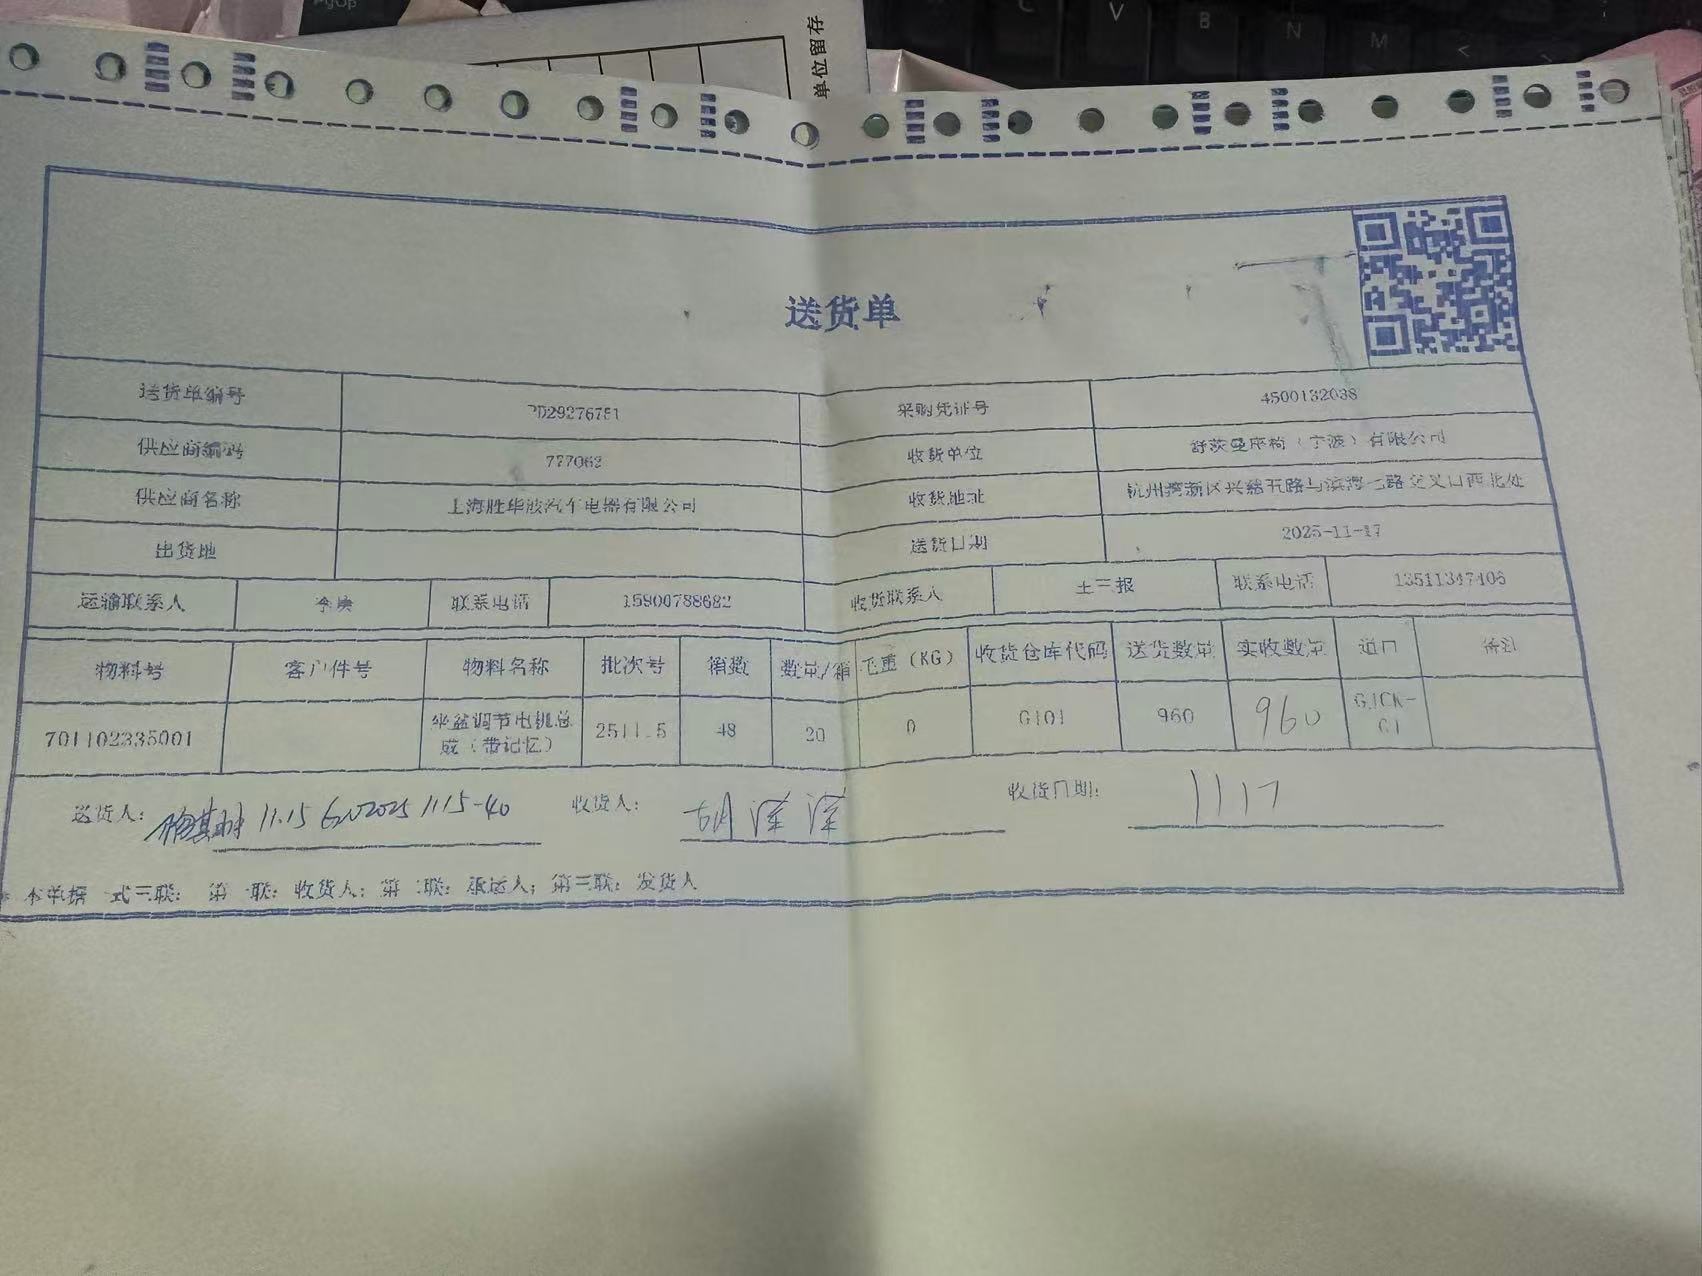 单位留存
送货单
送货单编号 PD29276751 采购凭证号 4500132038
供应商编码 777062 收货单位 舒茨曼座椅（宁波）有限公司
供应商名称 上海胜华波汽车电器有限公司 收货地址 杭州湾新区兴慈五路与滨海七路交叉口西北处
出货地 送货日期 2025-11-17
运输联系人 联系电话 15900788682 收货联系人 联系电话 13511347406
物料号 客户件号 物料名称 批次号 箱数 数量/箱 毛重（KG） 收货仓库代码 送货数量 实收数量 道口 备注
701102335001 坐盆调节电机总成（带记忆） 2511.5 48 20 0 G101 960 960 GJCK-G1
送货人： 11.15 收货人： 收货日期： 1117
* 本单据一式三联：第一联：收货人；第二联：承运人；第三联：发货人